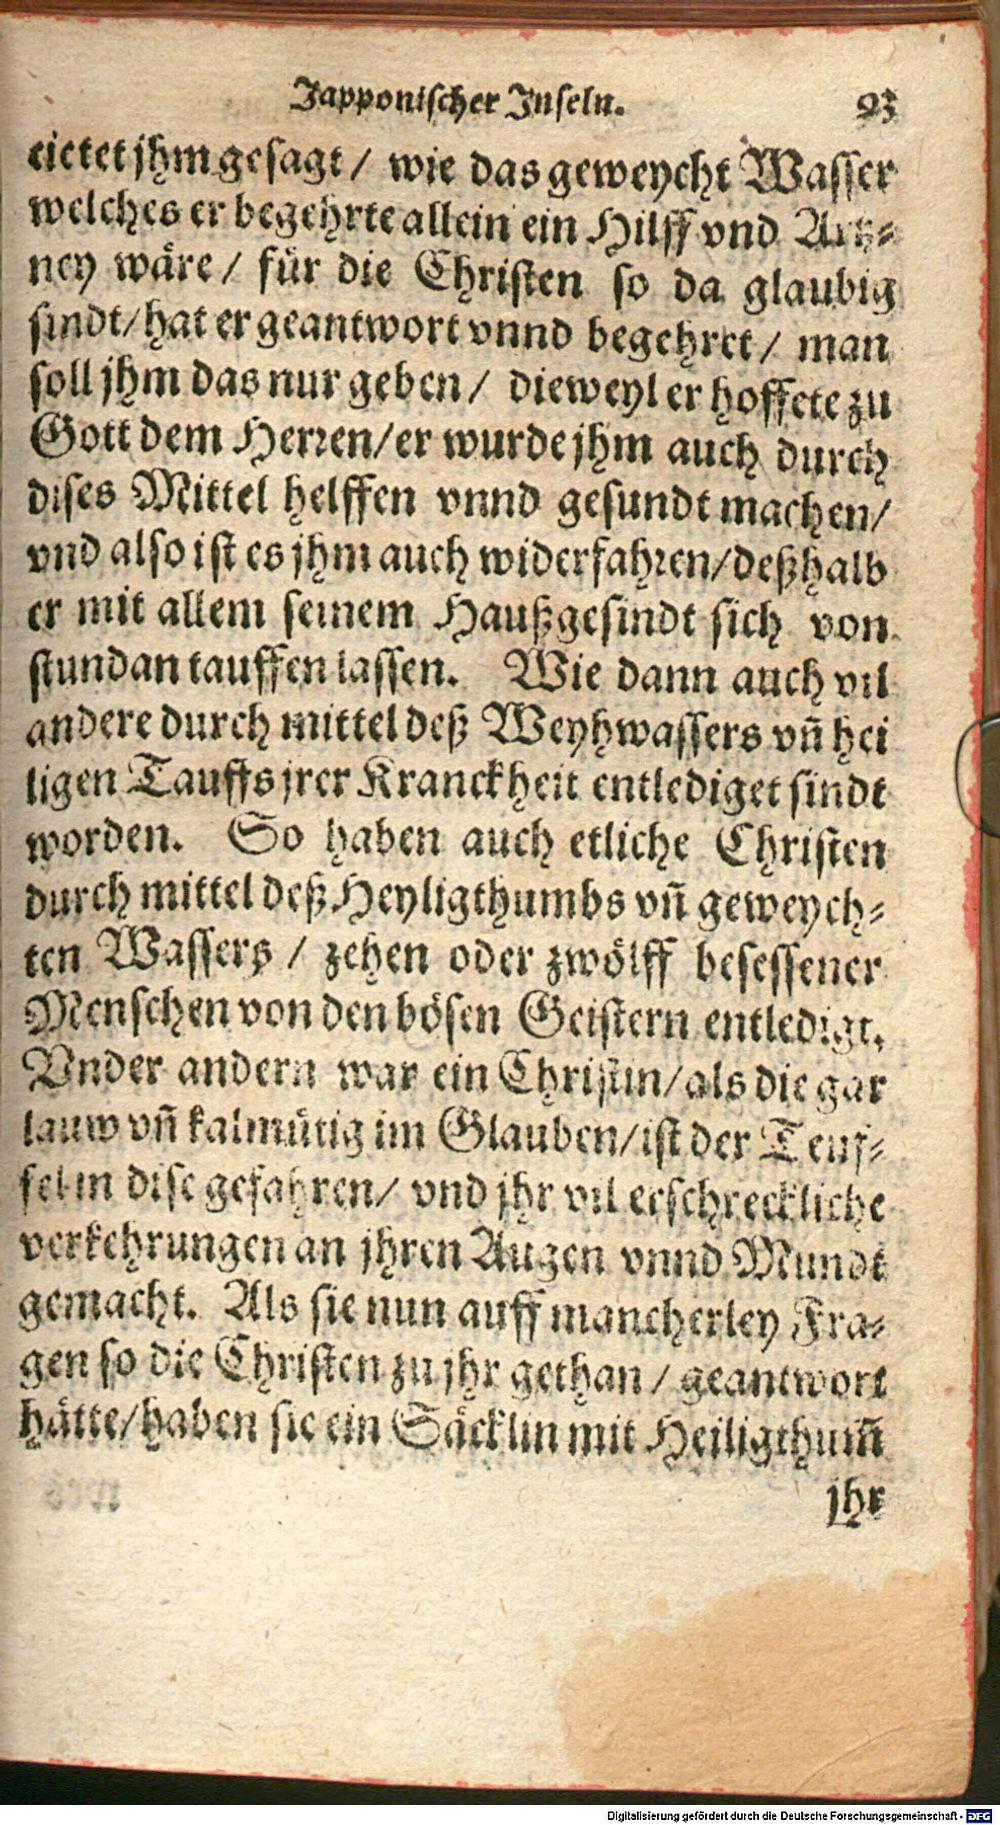 Japponischer Inseln. 93
tietet jhm gesagt / wie das geweycht Wasser
welches er begehrte allein ein Hilff vnd Artz⸗
ney wäre / für die Christen so da glaubig
sindt / hat er geantwort vnnd begehret / man
soll jhm das nur geben / dieweyl er hoffete zu
Gott dem Herren / er wurde jhm auch durch
dises Mittel helffen vnnd gesundt machen /
vnd also ist es jhm auch widerfahren / deßhalb
er mit allem seinem Haußgesindt sich von
stundan tauffen lassen. Wie dann auch vil
andere durch mittel deß Weyhwassers vn̄ hei
ligen Tauffs jrer Kranckheit entlediget sindt
worden. So haben auch etliche Christen
durch mittel deß Heyligthumbs vn̄ geweych⸗
ten Wassers / zehen oder zwölff besessener
Menschen von den bösen Geistern entledigt.
Vnder andern war ein Christin / als die gar
lauw vn̄ kalmütig im Glauben / ist der Teuf⸗
fel in dise gefahren / vnd jhr vil erschreckliche
verkehrungen an jhren Augen vnnd Mundt
gemacht. Als sie nun auff mancherley Fra⸗
gen so die Christen zu jhr gethan / geantwort
hätte / haben sie ein Säcklin mit Heiligthum̄
jhr
Digitalisierung gefördert durch die Deutsche Forschungsgemeinschaft - DFG